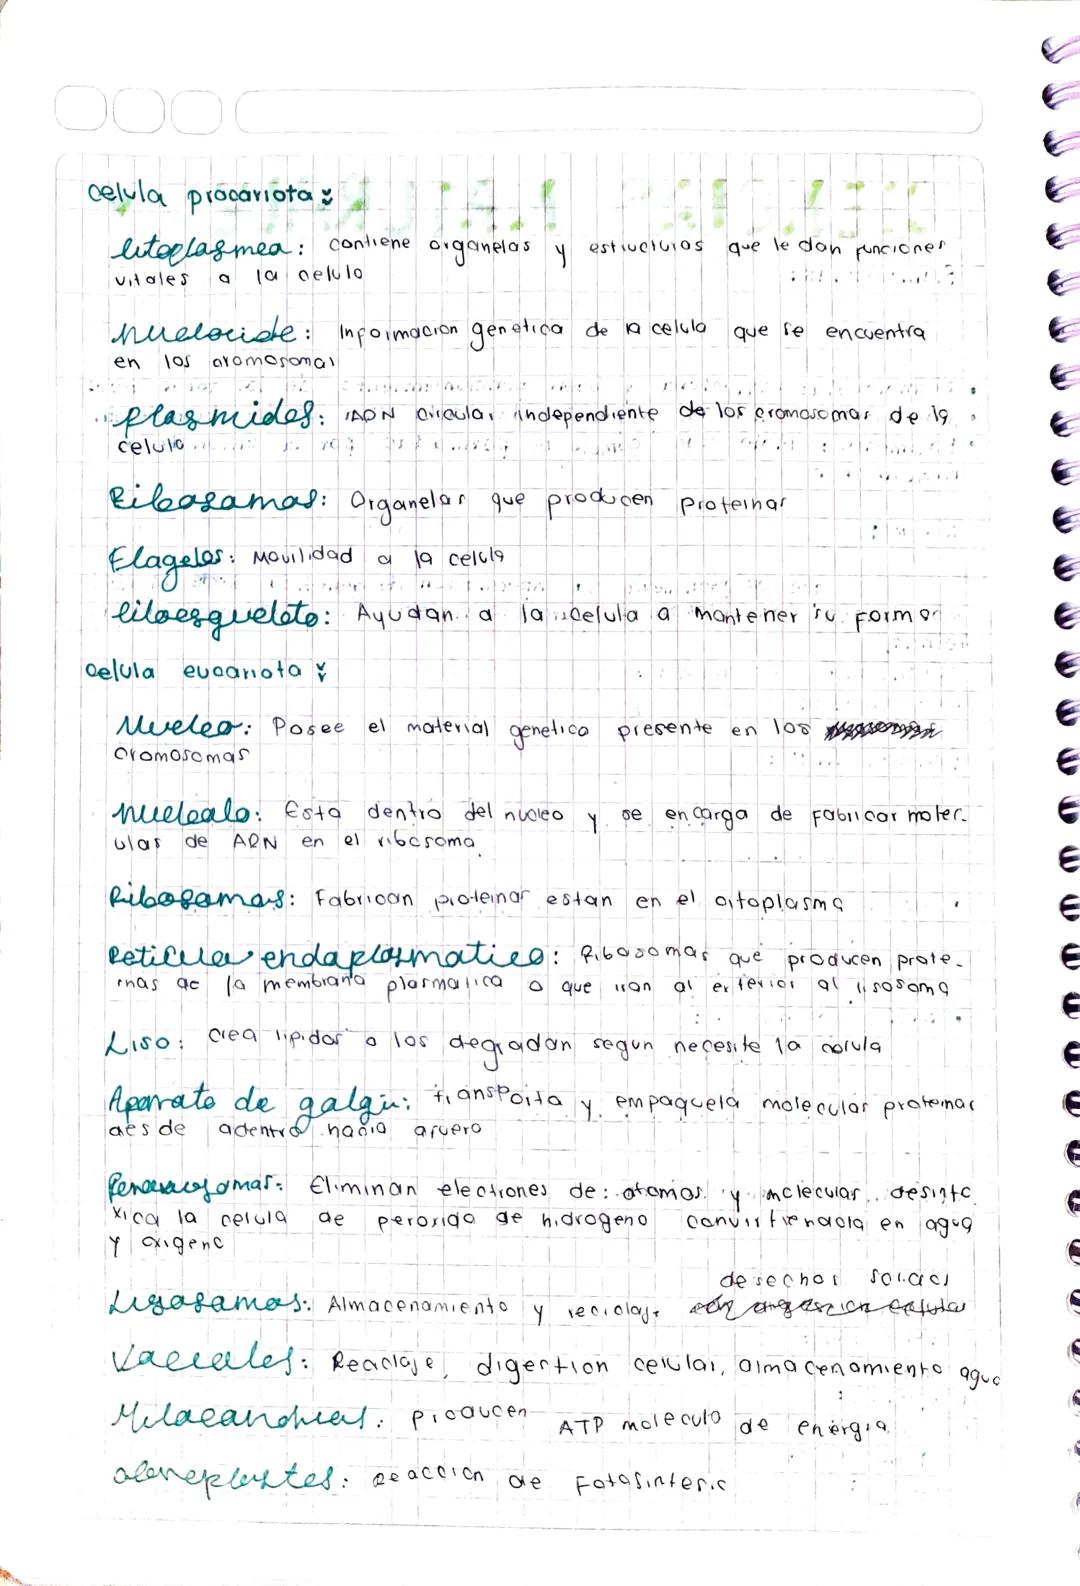 celula procariota:
Citoplasmea: contiene organelas y estructuras que le dan funciones
vitales a la celula
nucleoide: Informacion genetica de la celula que se encuentra
en los cromosomas
Plasmides: ADN circular independiente de los cromosomas de la
celula
Ribosomas: Organelas que producen proteinas
Flagelos: Movilidad a la celula
Citoesqueleto: Ayudan a la celula a mantener su forma
celula eucariota:
Nucleo: Posee el material genetico presente en los
cromosomas
nucleolo: Esta dentro del nucleo y se encarga de fabricar molec-
ulas de ARN en el ribosoma
Ribosomas: Fabrican proteinas estan en el citoplasma
Reticulo endoplasmatico: Ribosomas que producen prote-
inas de la membrana plasmatica o que iran al exterior al lisosoma
Liso: crea lipidos o los degradan segun necesite la celula
Aparato de golgi: transporta y empaqueta moleculas proteinas
desde adentro hacia afuera
Eliminan electrones de: atomos y moleculas desinto
xica la celula de peroxido de hidrogeno convirtiendola en agua
y oxigeno
desechos
Lisosomas: Almacenamiento y reciclaje
Vacuolas: Reaclaje, digestion celular, almacenamiento agua
Mitocondrias: Producen ATP molecula de energia
cloroplastos: Reaccion de Fotosintesis